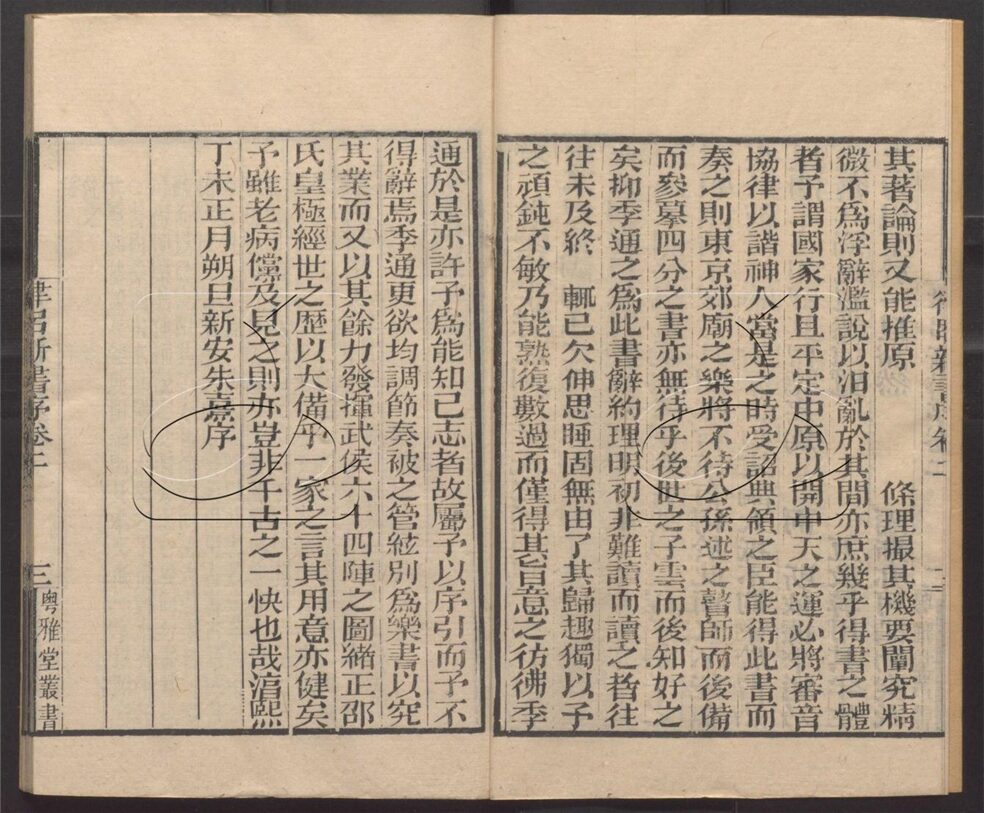 其著論則又能推原　　　條理撮其機要闡究精
微不爲浮辭濫說以汨亂於其間亦庶幾乎得書之體
者予謂國家行且平定中原以開中天之運必將審音
協律以諧神人當是之時受詔典領之臣能得此書而
奏之則東京郊廟之樂將不待公孫述之瞽師而後備
而參摹四分之書亦無待乎後世之子雲而後知好之
矣抑季通之爲此書辭約理明初非難讀而讀之者往
往未及終　輒已欠伸思睡固無由了其歸趣獨以予
之頑鈍不敏乃能熟復數過而僅得其旨意之彷彿季
通於是亦許予爲能知己志者故屬予以序引而予不
得辭焉季通更欲均調節奏被之管絃別爲樂書以究
其業而又以其餘力發揮武侯六十四陣之圖緒正邵
氏皇極經世之歷以大備乎一家之言其用意亦健矣
予雖老病儻及見之則亦豈非千古之一快也哉淳熙
丁未正月朔旦新安朱熹序
律呂新書序卷二
三
粤雅堂叢書